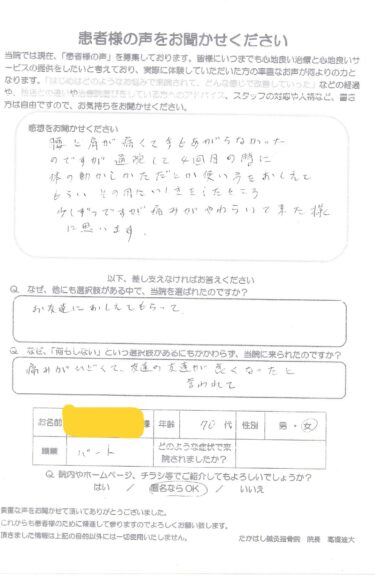 患者様の声をお聞かせください
当院では現在、「患者様の声」を募集しております。皆様にいつまでも心地良い治療と心地良いサ
ービスの提供をしたいと考えており、実際に体験していただいた方の率直なお声が何よりの力と
なります。「はじめはどのようなお悩みで来院されて、どんな感じで改善していった」などの経過
や、他院との違いや治療院選びをしている方へのアドバイス、スタッフの対応や人柄など、書き
方は自由ですので、お気持ちをお聞かせください。
感想をお聞かせください
腰と肩が痛くて手もあがらなかった
のですが 通院して4回目の時に
体の動かしかただとか使い方をおしえて
もらい その用
ところ
少しずつですが痛みがやわらいで来た様
に思います。
以下、差し支えなければお答えください
Q. なぜ、他にも選択肢がある中で、当院を選ばれたのですか？
お友達におしえてもらって、
Q. なぜ、「何もしない」という選択肢があるにもかかわらず、当院に来られたのですか？
痛みがひどくて、友達の友達が良くなったと
言われて
お名前 様 年齢 70代 性別 男・女
職業 パート どのような症状で来院されましたか？
Q. 院内やホームページ、チラシ等でご紹介してもよろしいでしょうか？
はい / 匿名ならOK / いいえ
貴重な声をお聞かせて頂いてありがとうございました。
これからも患者様のために精進して参りますのでよろしくお願い致します。
頂きました情報は上記の目的以外には一切使用いたしません。 たかはし鍼灸接骨院 院長 高橋